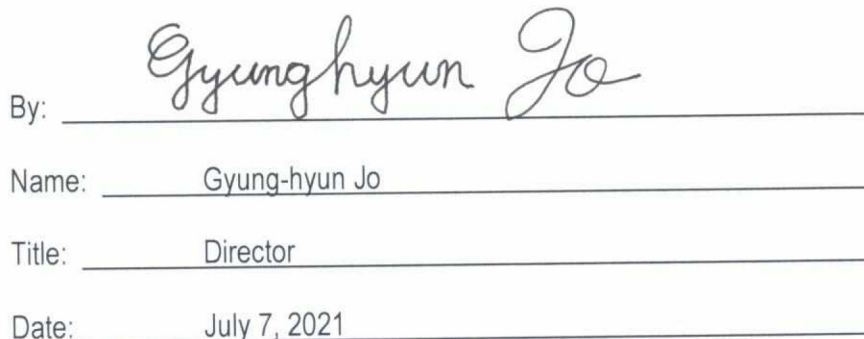 By: Gyunghyun Jo
Name: Gyung-hyun Jo
Title: Director
Date: July 7, 2021